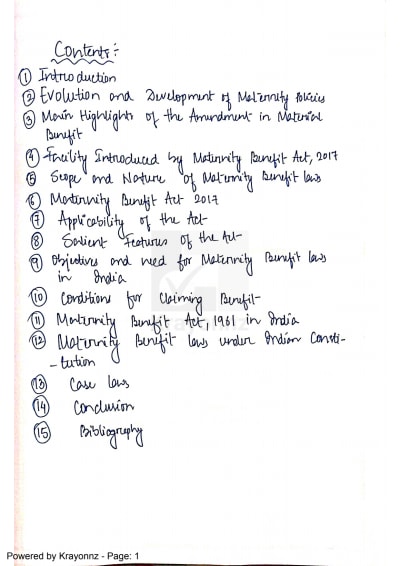 Contents :-
① Introduction
② Evolution and Development of Maternity Policies
③ Main Highlights of the Amendment in Material
Benefit
④ Facility Introduced by Maternity Benefit Act, 2017
⑤ Scope and Nature of Maternity Benefit laws
⑥ Maternity Benefit Act 2017
⑦ Applicability of the Act
⑧ Salient Features of the Act
⑨ Objectives and need for Maternity Benefit laws
in India
⑩ Conditions for Claiming Benefit
⑪ Maternity Benefit Act, 1961 in India
⑫ Maternity Benefit laws under Indian Consti-
-tution
⑬ Case laws
⑭ Conclusion
⑮ Bibliography
Powered by Krayonnz - Page: 1